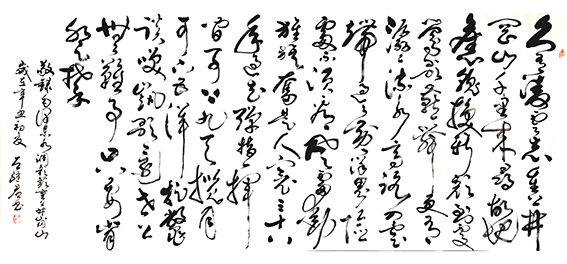 久有凌云志重上井
冈山千里来寻故地
旧貌换新颜到处
莺歌燕舞更有
潺潺流水高路入云
端过了黄洋界险
处不须看风雷动
旌旗奋是人寰三十八
年过去弹指一挥
间可上九天揽月
可下五洋捉鳖
谈笑凯歌还世上
无难事只要肯
登攀
敬录毛泽东水调歌头重上井冈山
岁在辛丑初夏 书